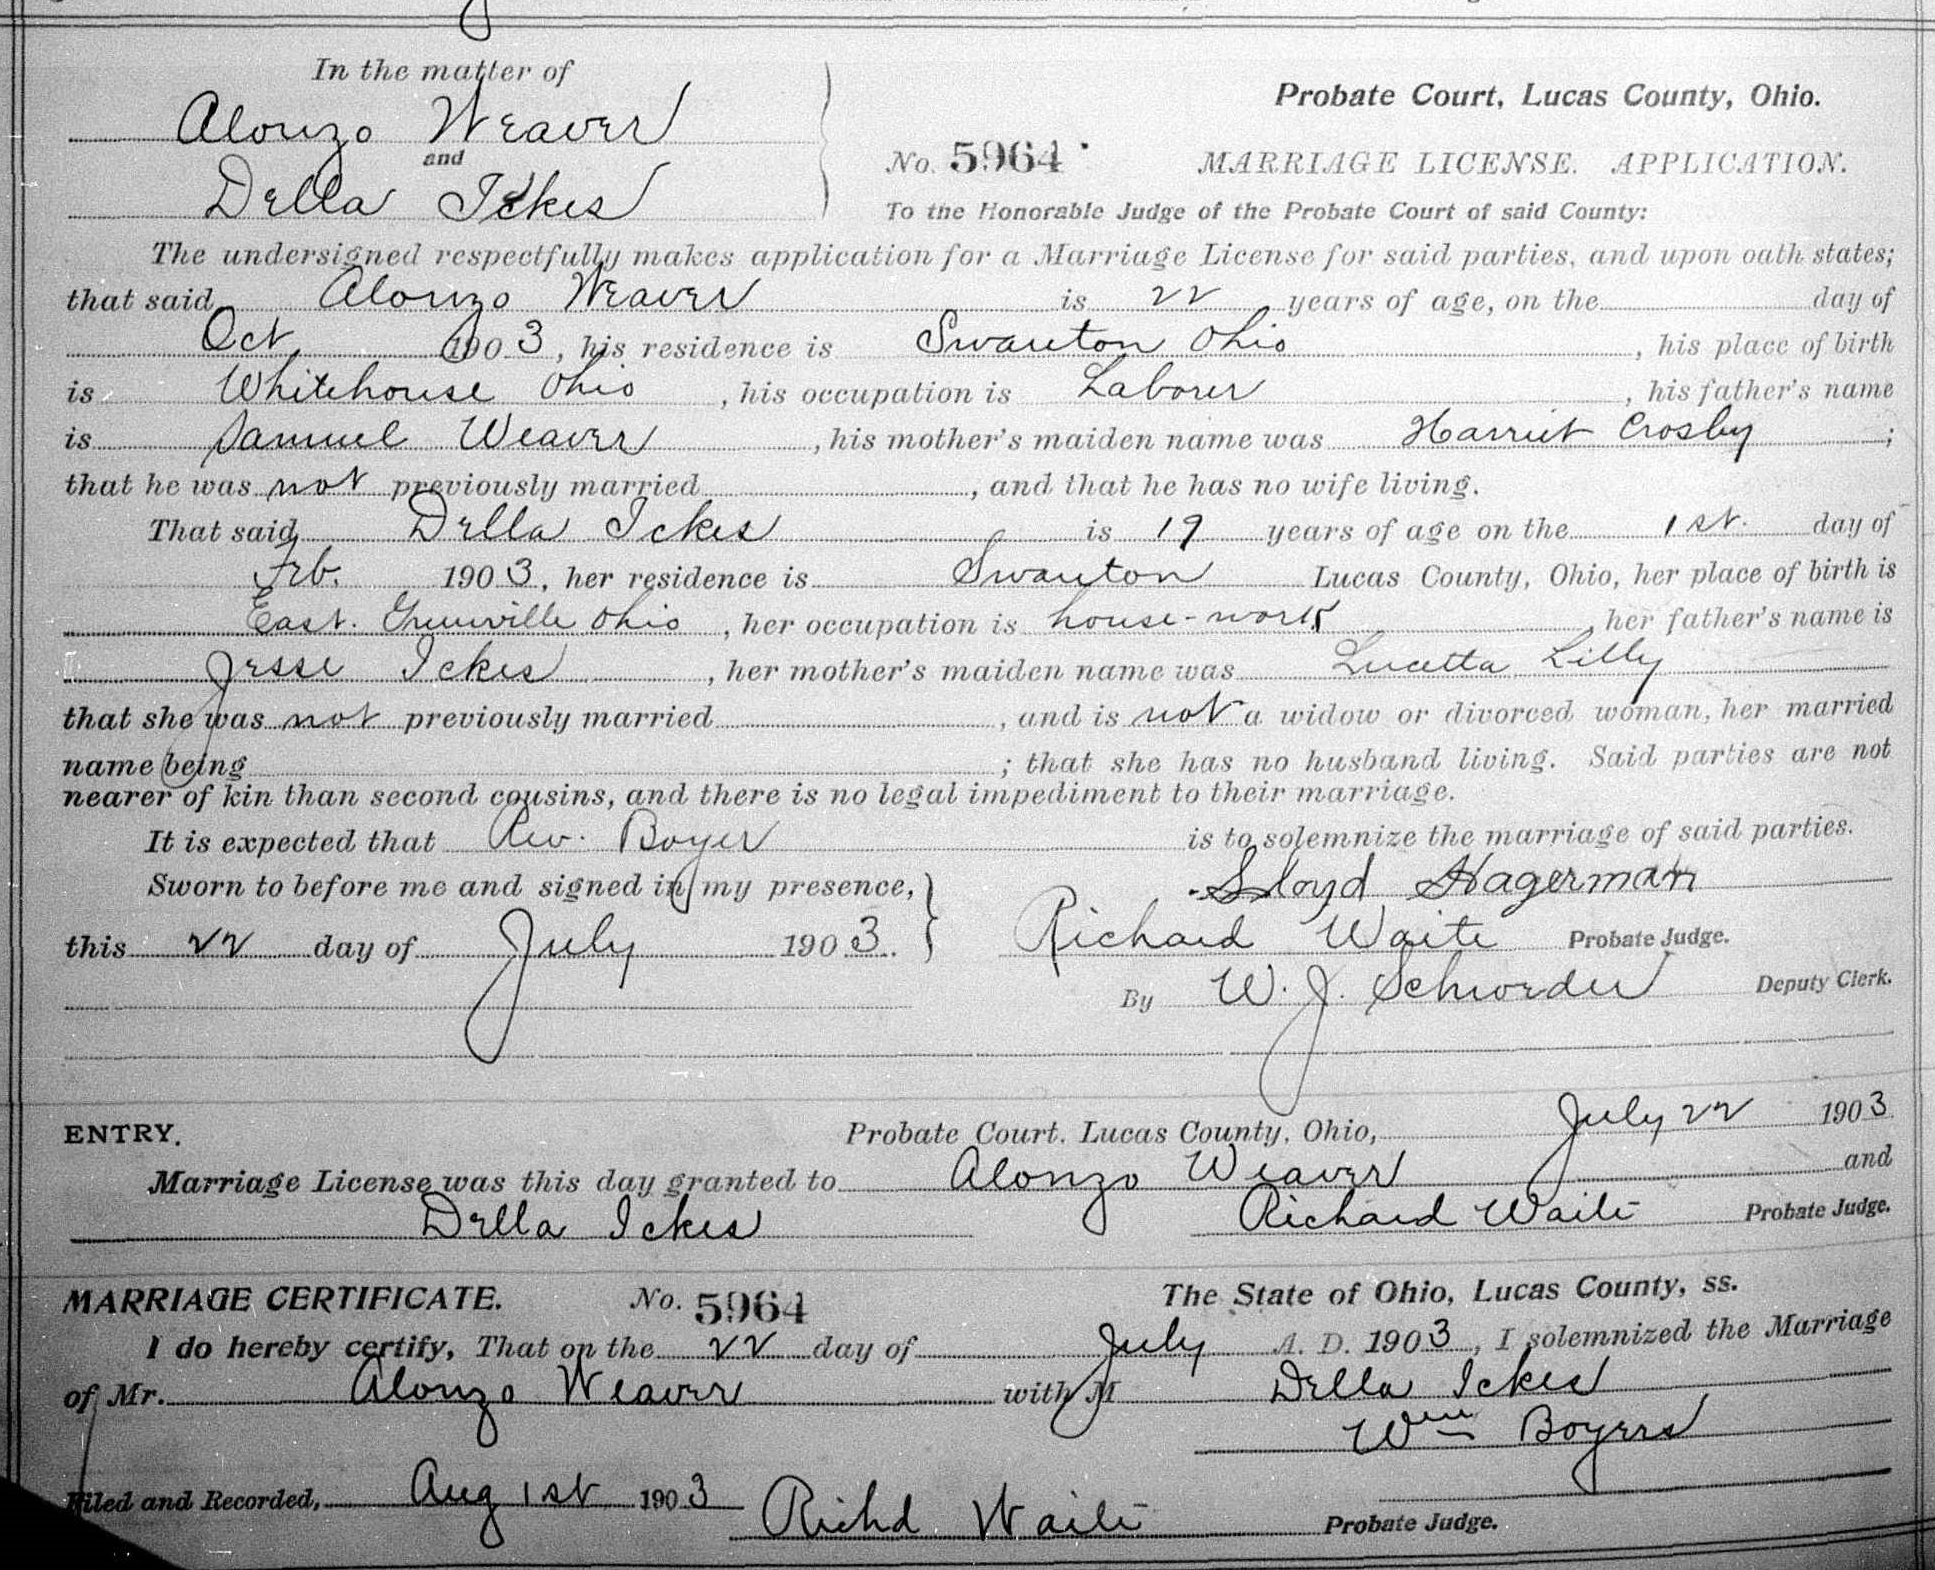 In the matter of
Alonzo Weaver
and
Della Ickes
Probate Court, Lucas County, Ohio.
No. 5964 MARRIAGE LICENSE. APPLICATION.
To the Honorable Judge of the Probate Court of said County:
The undersigned respectfully makes application for a Marriage License for said parties, and upon oath states;
that said Alonzo Weaver is 22 years of age, on the day of
Oct 1903, his residence is Swanton Ohio, his place of birth
is Whitehouse Ohio, his occupation is Laborer, his father's name
is Samuel Weaver, his mother's maiden name was Harriet Crosby;
that he was not previously married, and that he has no wife living.
That said Della Ickes is 19 years of age on the 1st. day of
Feb. 1903, her residence is Swanton Lucas County, Ohio, her place of birth is
East. Greenville Ohio, her occupation is house-work, her father's name is
Jesse Ickes, her mother's maiden name was Lucetta Lilly
that she was not previously married, and is not a widow or divorced woman, her married
name being ; that she has no husband living. Said parties are not
nearer of kin than second cousins, and there is no legal impediment to their marriage.
It is expected that Rev. Boyer is to solemnize the marriage of said parties.
Sworn to before me and signed in my presence, Lloyd Hagerman
this 22 day of July 1903. Richard Waite Probate Judge.
By W. J. Schroeder Deputy Clerk.
ENTRY. Probate Court. Lucas County, Ohio, July 22 1903
Marriage License was this day granted to Alonzo Weaver and
Della Ickes Richard Waite Probate Judge.
MARRIAGE CERTIFICATE. No. 5964 The State of Ohio, Lucas County, ss.
I do hereby certify, That on the 22 day of July A. D. 1903, I solemnized the Marriage
of Mr. Alonzo Weaver with M Della Ickes
Wm Boyers
Filed and Recorded, Aug 1st 1903 Richd Waite Probate Judge.